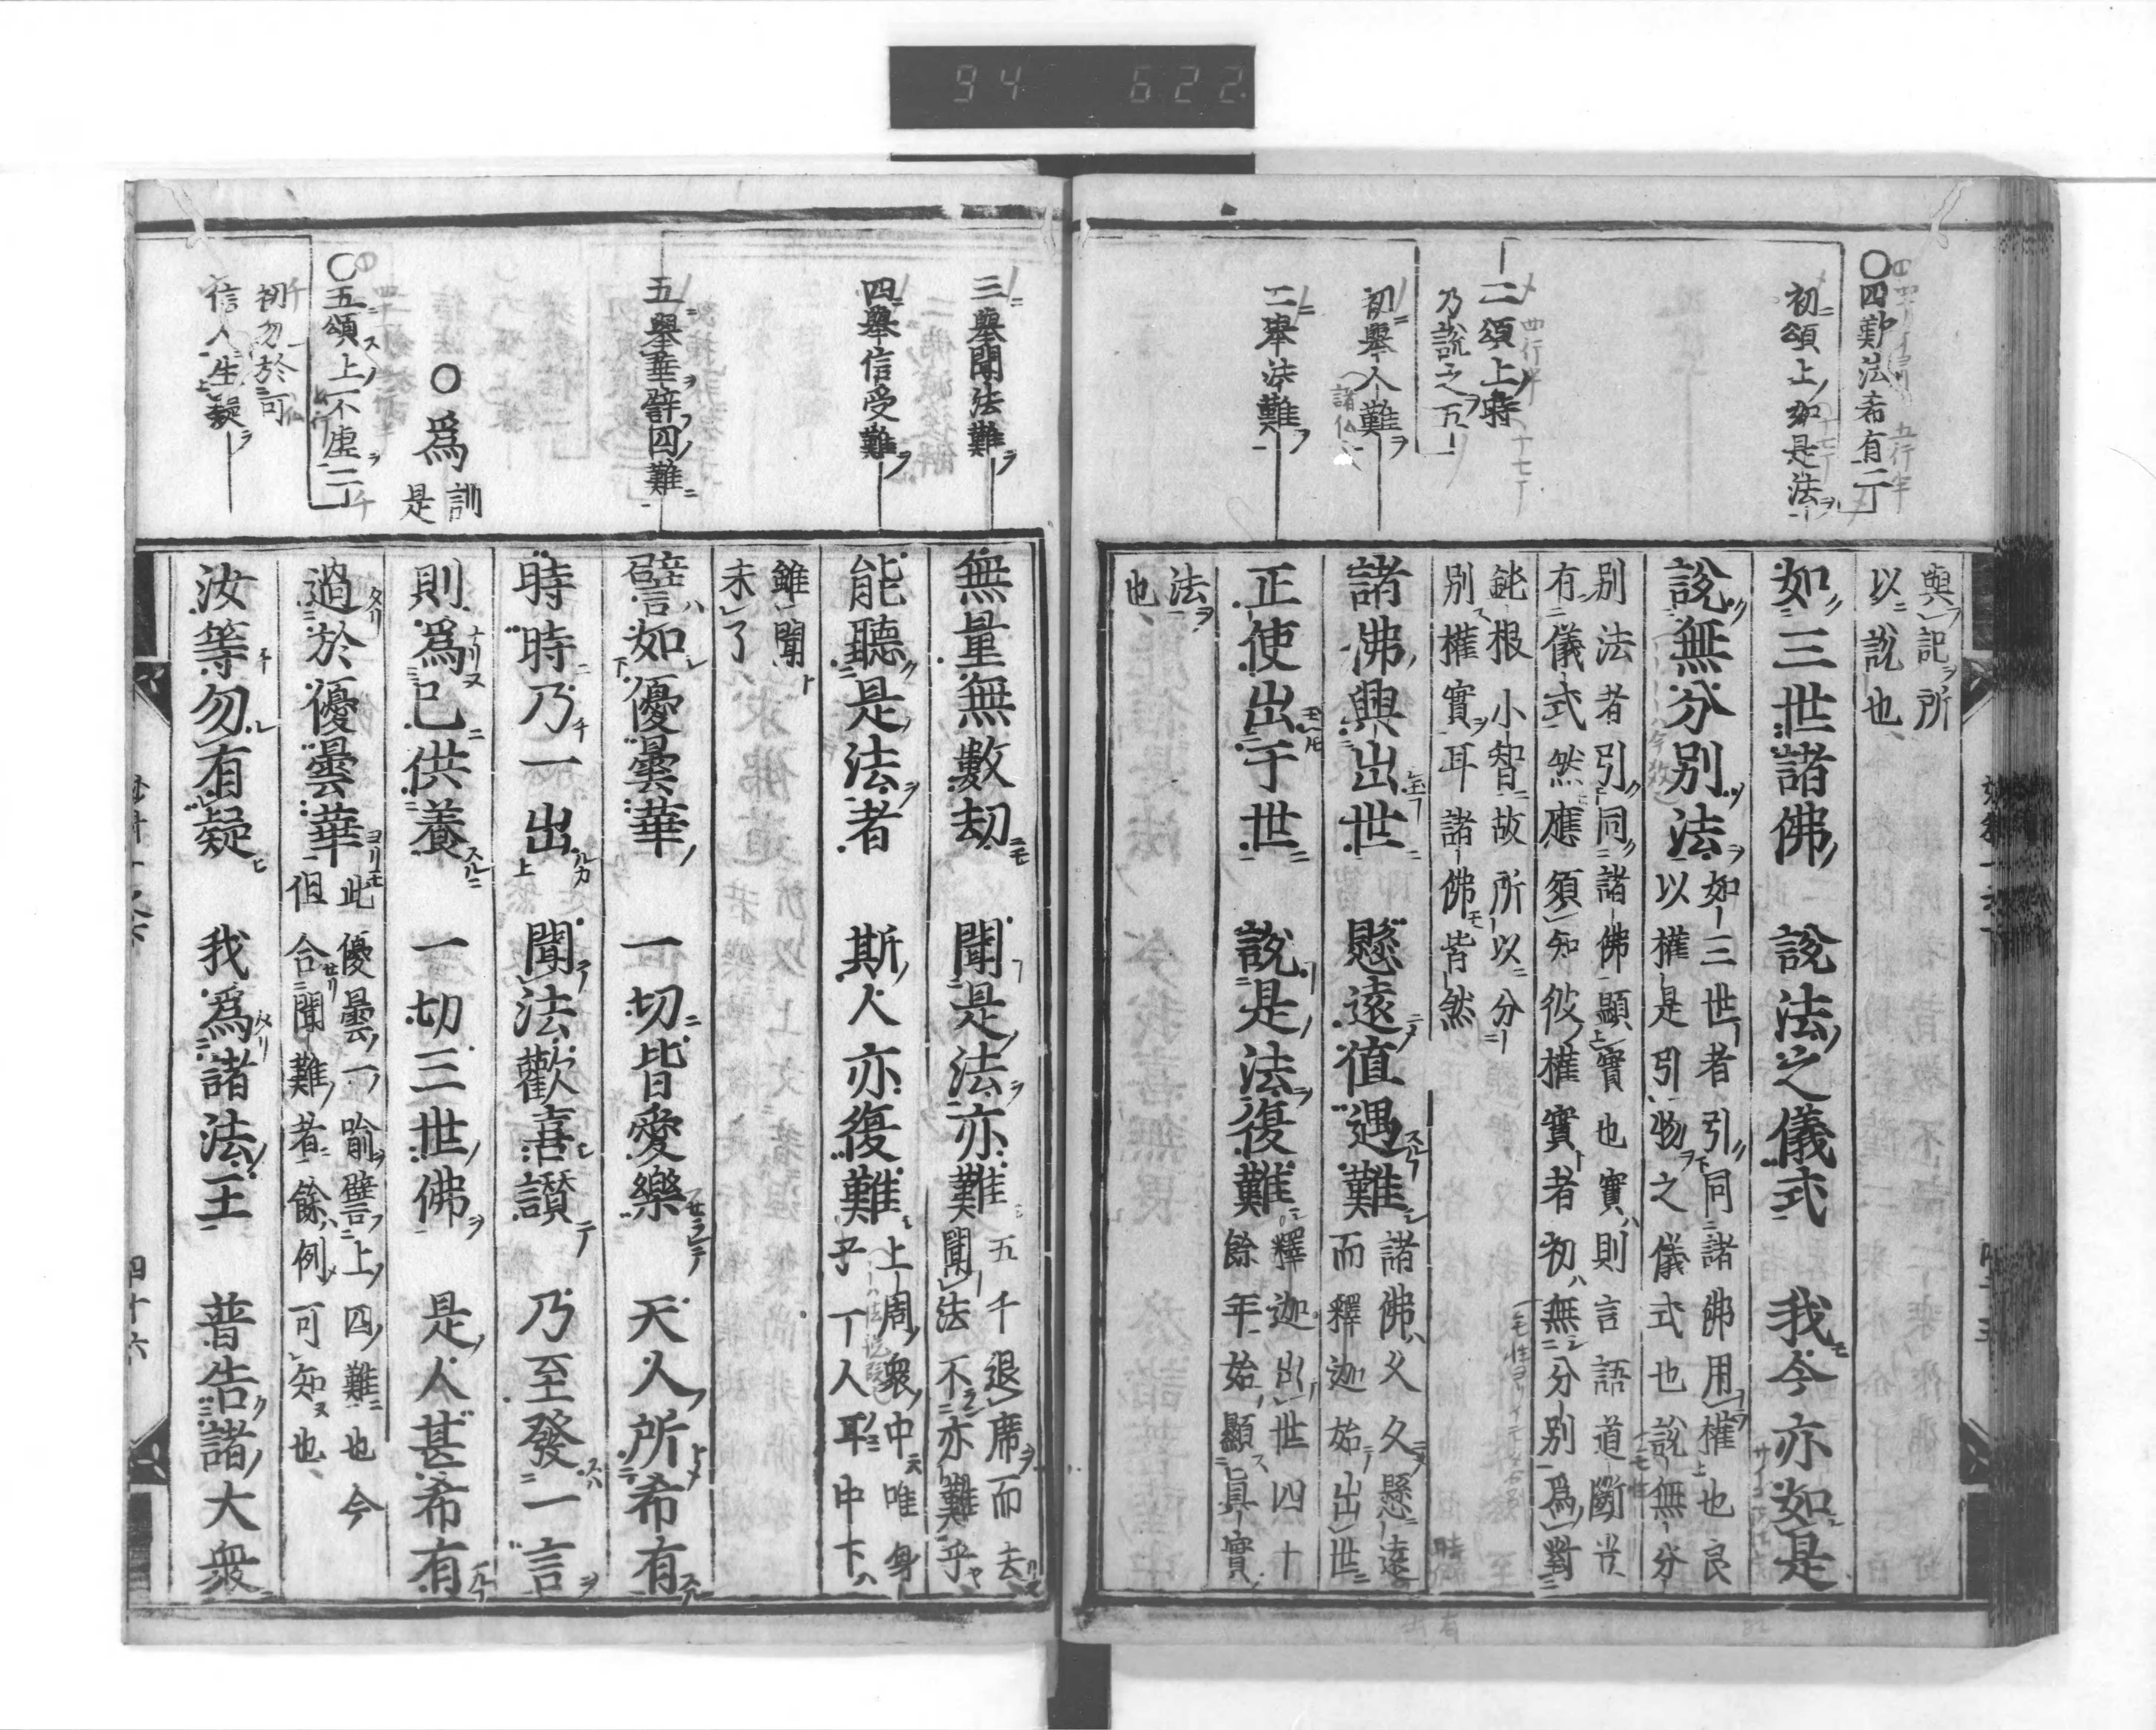 94 622
〇四歎法希有二
初頌上如是法
二頌上時
乃說之五
初舉人難
二舉法難
與記所
以說也
如三世諸佛 說法之儀式 我今亦如是
說無分別法
如三世者引同諸佛用權也良
以權是引物之儀式也說無分
別法者引同諸佛顯實也實則言語道斷豈
有儀式然應須知彼權實者初無分別為對
鈍根小智故所以分
別權實耳諸佛皆然
諸佛興出世 懸遠值遇難
諸佛久久懸遠
而釋迦始出世
正使出于世 說是法復難
釋迦出世四十
餘年始顯真實
法
也
三舉聞法難
四舉信受難
五舉華譬四難
〇為
訓
是
〇五頌上不虛二
初勿於可
信人生疑
無量無數劫 聞是法亦難
五千退席而去
聞法不亦難乎
能聽是法者 斯人亦復難
上周眾中唯身
子一人耳中下
雖聞
未了
譬如優曇華 一切皆愛樂 天人所希有
時時乃一出 聞法歡喜讚 乃至發一言
則為已供養 一切三世佛 是人甚希有
過於優曇華
此優曇一喻譬上四難也今
但合聞難者餘例可知也
汝等勿有疑 我為諸法王 普告諸大衆
四十六